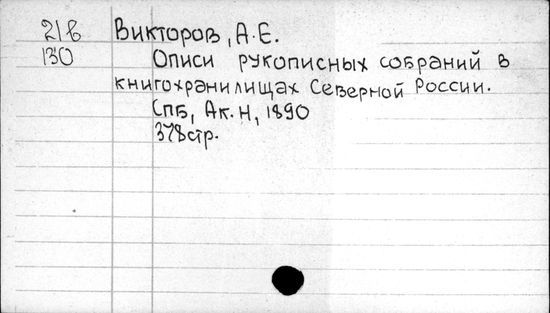 21в Викторов, А.Е.
130 Описи рукописных собраний в
книгохранилищах Северной России.
Спб, Ак.Н, 1890
378стр.